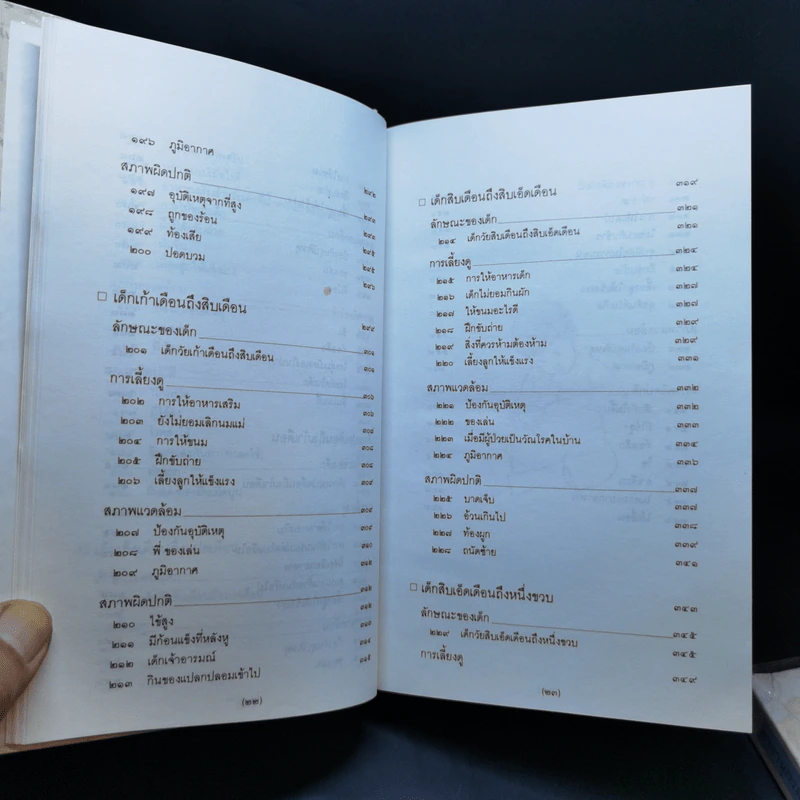 ๑๙๖ ภูมิอากาศ
สภาพผิดปกติ ๒๙๒
๑๙๗ อุบัติเหตุจากที่สูง
๑๙๘ ถูกของร้อน
๑๙๙ ท้องเสีย
๒๐๐ ปอดบวม
๒๙๖
□ เด็กเก้าเดือนถึงสิบเดือน
ลักษณะของเด็ก
๒๐๑ เด็กวัยเก้าเดือนถึงสิบเดือน
การเลี้ยงดู
๒๐๒ การให้อาหารเสริม
๒๐๓ ยังไม่ยอมเลิกนมแม่
๒๐๔ การให้ขนม
๒๐๕ ฝึกขับถ่าย
๒๐๖ เลี้ยงลูกให้แข็งแรง
สภาพแวดล้อม
๒๐๗ ป้องกันอุบัติเหตุ
๒๐๘ พี่ ของเล่น
๒๐๙ ภูมิอากาศ
สภาพผิดปกติ
๒๑๐ ไข้สูง
๒๑๑ มีก้อนแข็งที่หลังหู
๒๑๒ เด็กเจ้าอารมณ์
๒๑๓ กินของแปลกปลอมเข้าไป
(๒๒)
□ เด็กสิบเดือนถึงสิบเอ็ดเดือน ๓๑๙
ลักษณะของเด็ก ๓๒๑
๒๑๔ เด็กวัยสิบเดือนถึงสิบเอ็ดเดือน ๓๒๑
การเลี้ยงดู ๓๒๔
๒๑๕ การให้อาหารเด็ก ๓๒๔
๒๑๖ เด็กไม่ยอมกินผัก ๓๒๗
๒๑๗ ให้ขนมอะไรดี ๓๒๗
๒๑๘ ฝึกขับถ่าย ๓๒๙
๒๑๙ สิ่งที่ควรห้ามต้องห้าม ๓๒๙
๒๒๐ เลี้ยงลูกให้แข็งแรง ๓๓๑
สภาพแวดล้อม ๓๓๒
๒๒๑ ป้องกันอุบัติเหตุ ๓๓๒
๒๒๒ ของเล่น ๓๓๓
๒๒๓ เมื่อมีผู้ป่วยเป็นวัณโรคในบ้าน ๓๓๔
๒๒๔ ภูมิอากาศ ๓๓๖
สภาพผิดปกติ ๓๓๗
๒๒๕ บาดเจ็บ ๓๓๗
๒๒๖ อ้วนเกินไป ๓๓๘
๒๒๗ ท้องผูก ๓๓๙
๒๒๘ ถนัดซ้าย ๓๔๑
□ เด็กสิบเอ็ดเดือนถึงหนึ่งขวบ ๓๔๓
ลักษณะของเด็ก ๓๔๕
๒๒๙ เด็กวัยสิบเอ็ดเดือนถึงหนึ่งขวบ ๓๔๕
การเลี้ยงดู ๓๔๙
(๒๓)